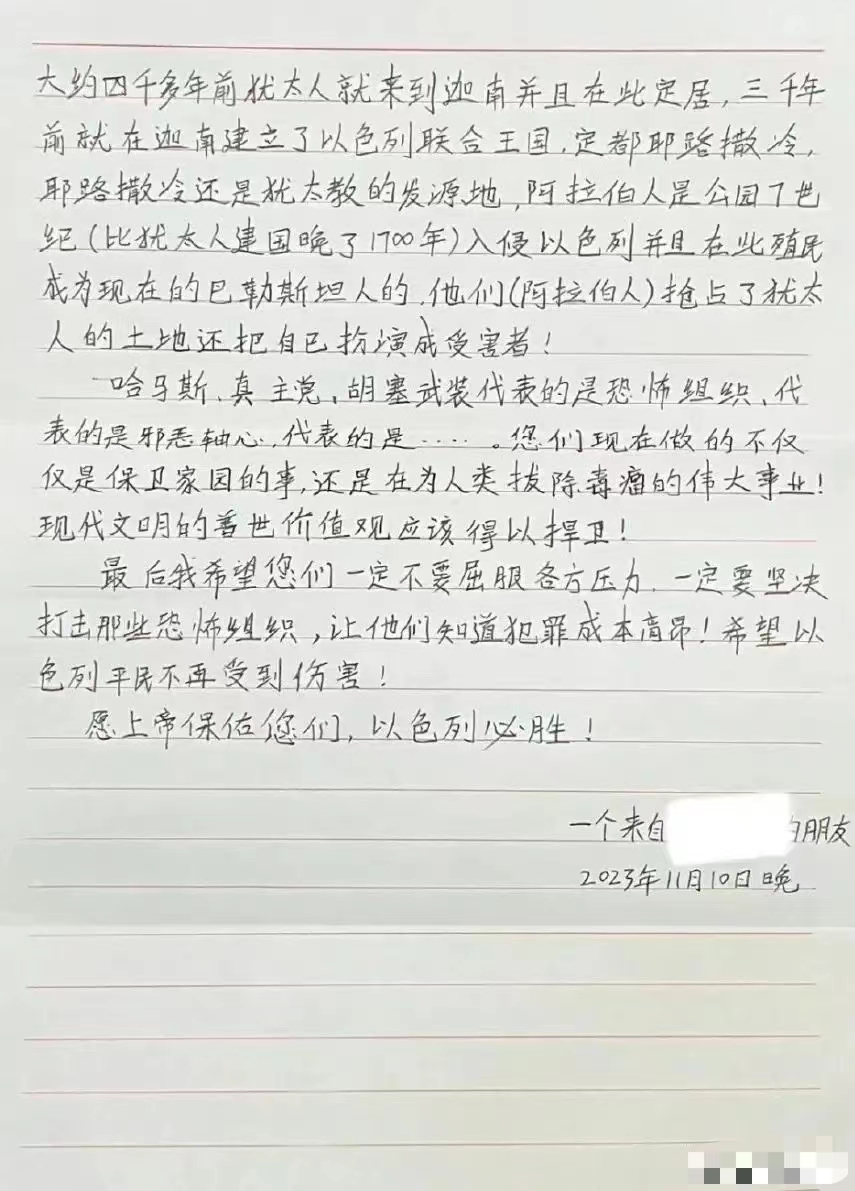 大约四千多年前犹太人就来到迦南并且在此定居，三千年
前就在迦南建立了以色列联合王国，定都耶路撒冷，
耶路撒冷还是犹太教的发源地，阿拉伯人是公园7世
纪（比犹太人建国晚了1700年）入侵以色列并且在此殖民
成为现在的巴勒斯坦人的，他们（阿拉伯人）抢占了犹太
人的土地还把自己扮演成受害者！
哈马斯、真主党、胡塞武装代表的是恐怖组织、代
表的是邪恶轴心，代表的是……。您们现在做的不仅
仅是保卫家园的事，还是在为人类拔除毒瘤的伟大事业！
现代文明的普世价值观应该得以捍卫！
最后我希望您们一定不要屈服各方压力，一定要坚决
打击那些恐怖组织，让他们知道犯罪成本高昂！希望以
色列平民不再受到伤害！
愿上帝保佑您们，以色列必胜！
一个来自
的朋友
2023年11月10日晚